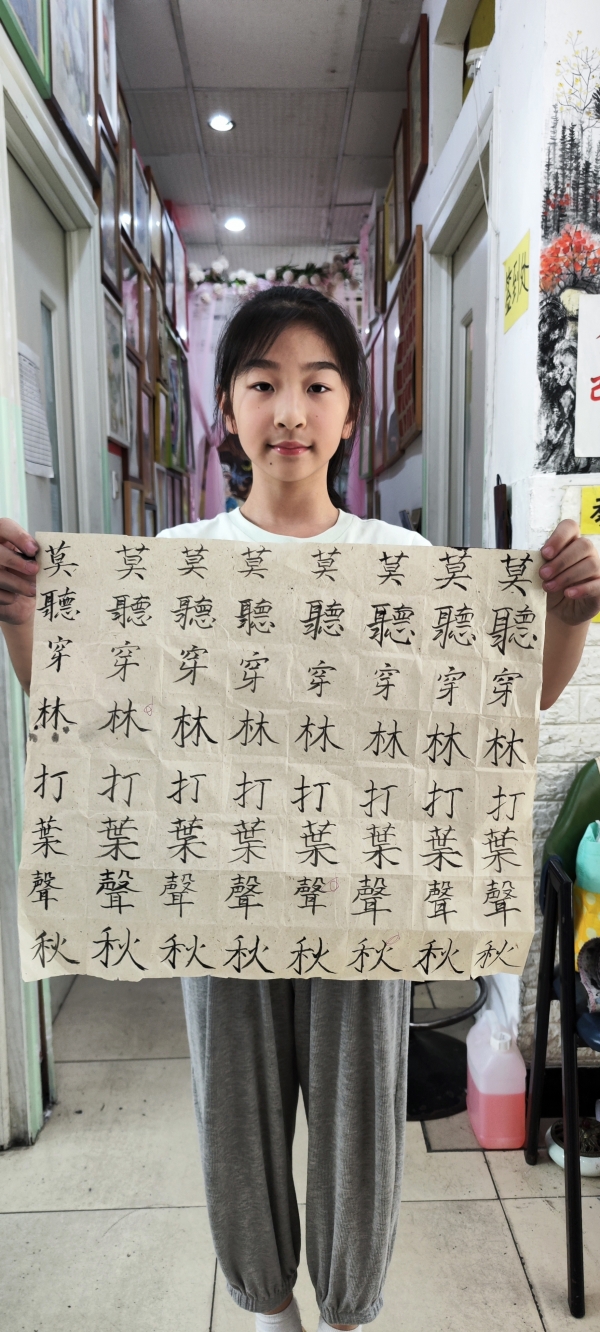 莫 莫 莫 莫 莫 莫 莫 莫
聽 聽 聽 聽 聽 聽 聽 聽
穿 穿 穿 穿 穿 穿 穿 穿
林 林 林 林 林 林 林 林
打 打 打 打 打 打 打 打
葉 葉 葉 葉 葉 葉 葉 葉
聲 聲 聲 聲 聲 聲 聲 聲
秋 秋 秋 秋 秋 秋 秋 秋